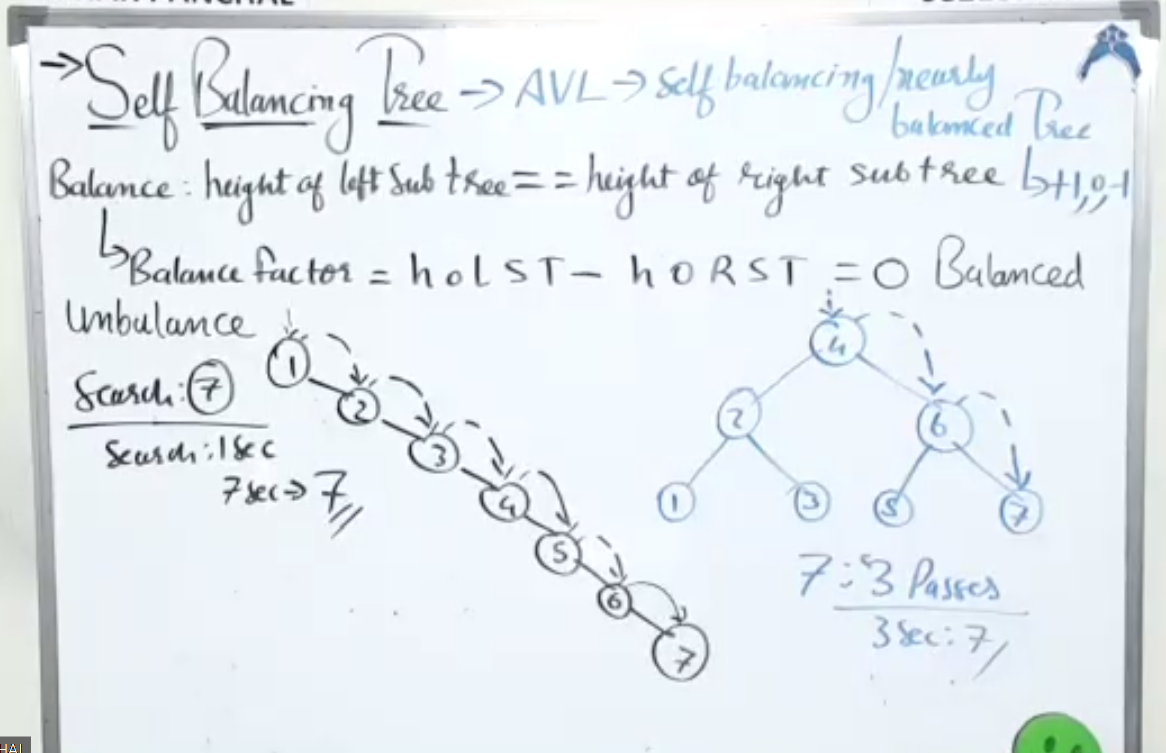 → Self Balancing Tree → AVL → Self balancing/nearly
balanced Tree
Balance: height of left Sub tree == height of right subtree ↳ +1, 0, -1
↳ Balance factor = hoLST - hORST = 0 Balanced
Unbalance
Search: 7
Search: 1 sec
7 sec → 7
1
2
3
4
5
6
7
4
2
6
1
3
5
7
7: 3 Passes
3 Sec: 7